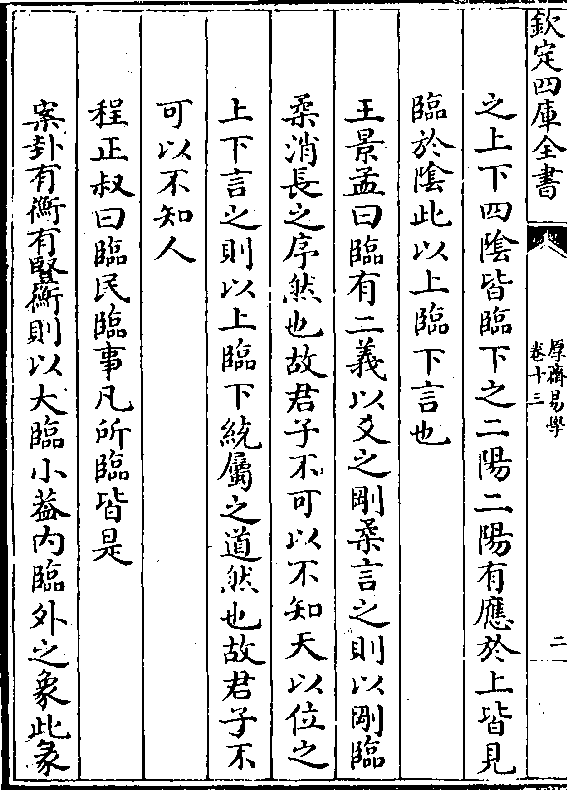 欽定四庫全書
厚齋易學
卷十三
二
之上下四陰皆臨下之二陽二陽有應於上皆見
臨於陰此以上臨下言也
王景孟曰臨有二義以爻之剛柔言之則以剛臨
柔消長之序然也故君子不可以不知天以位之
上下言之則以上臨下統屬之道然也故君子不
可以不知人
程正叔曰臨民臨事凡所臨皆是
案卦有衡有豎衡則以大臨小葢内臨外之象此彖